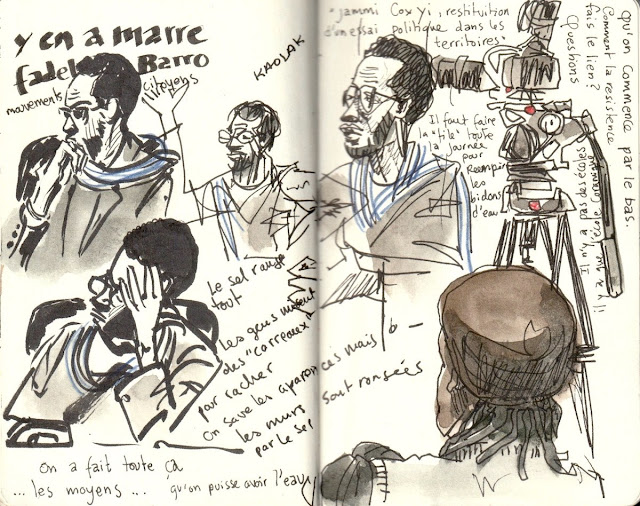 y en a marre
fadel Barro
mouvements
citoyens
KAOLAK
Le sel range
tout
Les gens mettent
des "carreaux"
par cacher
On save les apparences mais
les murs
par le sel
sont rongées
On a fait toute ça
... les moyens ... qu'on puisse avoir l'eau
"jammi Cox yi, restitution
d'un essai politique dans les
territoires"
Il faut faire
la "file" toute
la journée
pour
Remplir
les
bidons
d'eau
qu'on commence par le bas.
Comment la resistence
fais le lien?
Questions
à y'a pas des écoles
école coranique